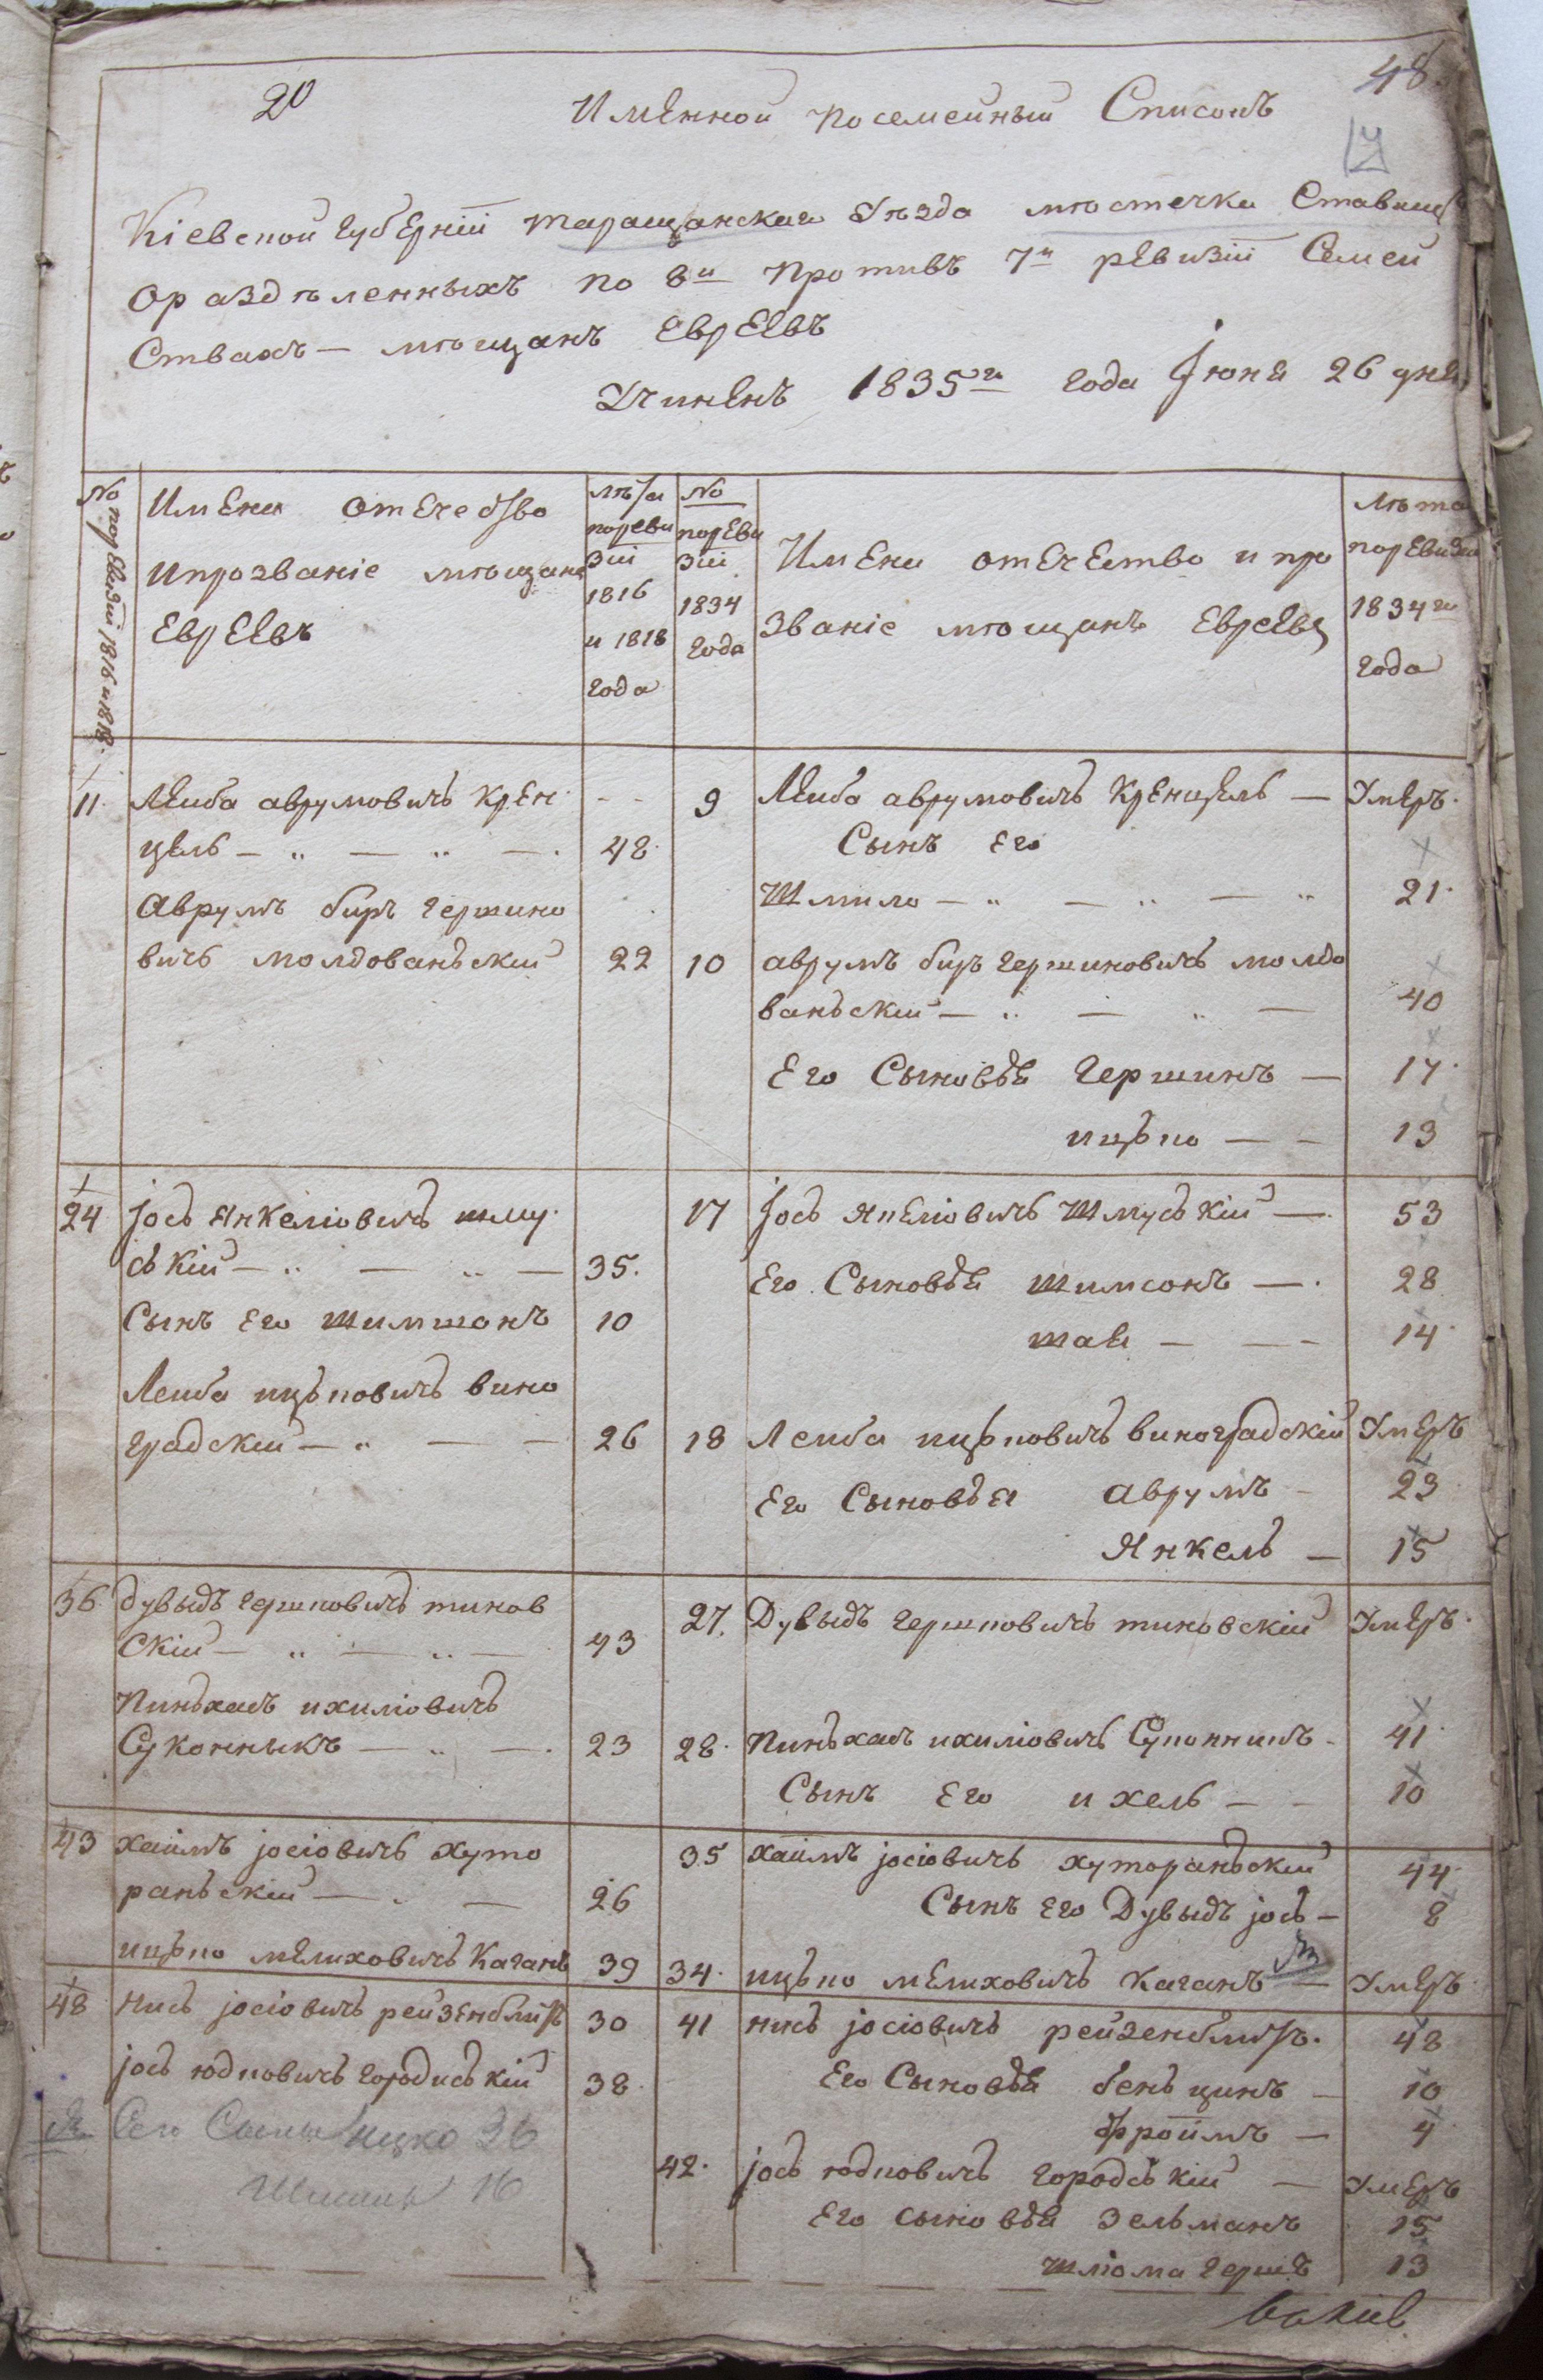 20
48.
Имянной посемейный Списокъ
Кіевской Губерніи Таращанскаго Уѣзда мѣстечка Ставищ
ораздѣленныхъ по 8й противъ 7й ревизіи Семей
Ствахъ — мѣщанъ Евреевъ
Учинѣнъ 1835го года Іюня 26 дня
№ поревизіи 1816 и 1818.
Имена отечество
ипрозваніе мѣщанъ
Евреевъ
лѣта
пореви
зіи
1816
и 1818
года
№
пореви
зіи
1834
года
Имена отечество и про
званіе мѣщанъ Евреевъ
Лѣта
поревизіи
1834го
года
11. Лейба аврумовичъ Крен - - 9 Лейба аврумовичъ Кренцель — Умеръ.
цель — „ — „ — . 48. Сынъ его
Аврумъ беръ Гершко Шмило — „ — „ — „ 21.
вичъ молдованьскій 22 10 аврумъ беръ Гершковичъ молдо
ваньскій — „ — „ — 40
Его Сыновья Гершкнъ — 17.
ицько — — 13
24 Іось Янкеліовичъ шму 17 Іось Янкеліовичъ Шмуській — 53
ській — „ — „ — 35. Его Сыновья Шимсонъ — . 28
Сынъ Его Шимшонъ 10 шая — — — 14.
Лейба ицьковичъ вино
градскій — „ — — 26 18 Лейба ицьковичъ виноградскій Умеръ
Его Сыновья Аврумъ - 23
Янкель — 15
36. дувыдъ Гершковичъ тинов 27. Дувыдъ Гершковичъ тиновскій Умеръ.
Скій — „ — „ — 43
Пиньхасъ ихиліовичъ
Суконныкъ — „ — . 23 28. Пиньхасъ ихиліовичъ Суконникъ - 41.
Сынъ Его ихель — - 10
43 хаимъ іосіовичъ хуто 35 хаимъ іосіовичъ хутораньскій 44.
раньскій — . — 26 Сынъ Его Дувыдъ іось — 8
ицько мелиховичъ Каганъ 39 34. ицько мелиховичъ Каганъ — Умеръ.
48 нись іосіовичъ рейзенблитъ 30 41 нись іосіовичъ рейзенблитъ. 48
іось юдковичъ Городиській 38. Его Сыновья бень цинъ — 10
Его Сыны Ицко 26 фроимъ — 4.
16 42. іось юдковичъ городській — Умеръ
Его сыновья Зельманъ 15
шліома Гершъ 13